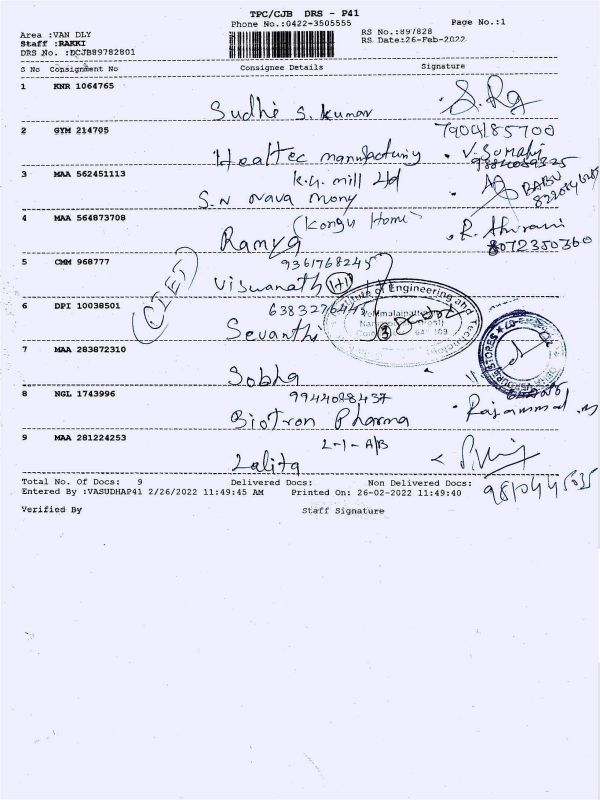 TPC/CJB DRS - P41
Phone No.:0422-3505555
Page No.:1
Area :VAN DLY
RS No.:897828
Staff :RAKKI
RS Date:26-Feb-2022
DRS No. :DCJB89782801
S No Consignment No Consignee Details Signature
1 KNR 1064765
Sudhi S. Kumar
2 GYM 214705 7904185700
Healtec manufacturing V. Sumathi
3 MAA 562451113 K.G. mill Ltd
S.N nava mony BABU
4 MAA 564873708 (Kongu Home)
Ramya R. Thurani
8072350360
5 CMM 968777 9361768245
Viswanath (1+1)
(CIET)
6 DPI 10038501
Sevanthi
7 MAA 283872310
Sobha
8 NGL 1743996 9944088437
Biotron Pharma Rajammal
9 MAA 281224253 L-1-A/B
Lalita
Total No. Of Docs: 9 Delivered Docs: Non Delivered Docs:
Entered By :VASUDHAP41 2/26/2022 11:49:45 AM Printed On: 26-02-2022 11:49:40
Verified By Staff Signature